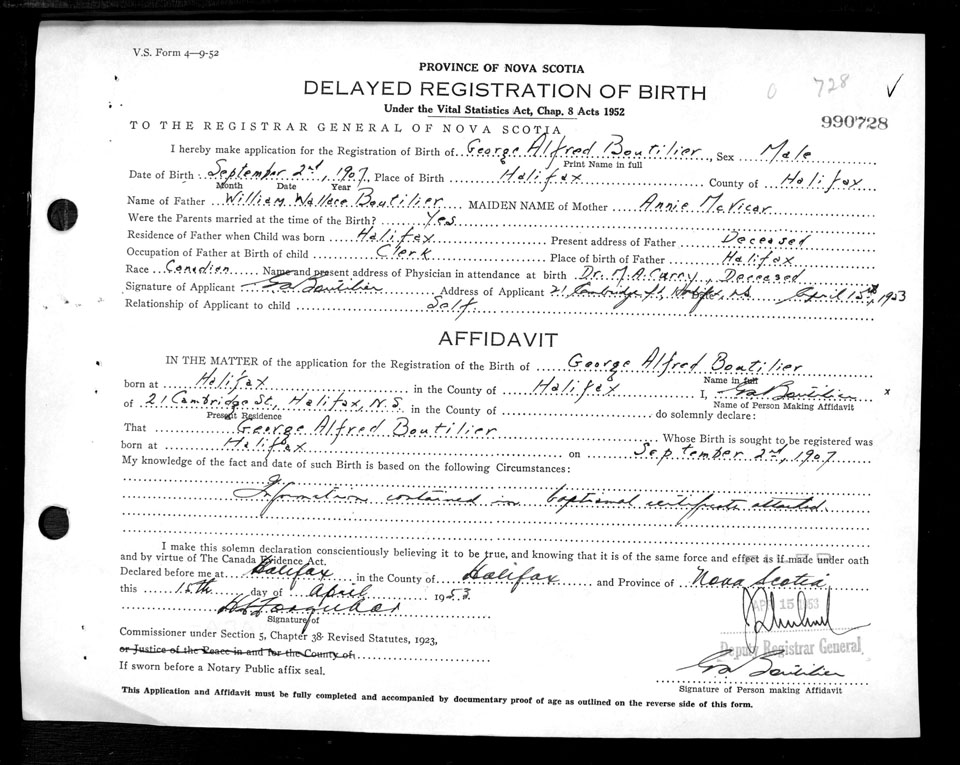 V.S. Form 4—9-52
PROVINCE OF NOVA SCOTIA
DELAYED REGISTRATION OF BIRTH
0 728 ✓
Under the Vital Statistics Act, Chap. 8 Acts 1952
990728
TO THE REGISTRAR GENERAL OF NOVA SCOTIA
I hereby make application for the Registration of Birth of George Alfred Boutilier, Sex Male
Print Name in full
Date of Birth September 2nd, 1907 Place of Birth Halifax County of Halifax
Month Date Year
Name of Father William Wallace Boutilier MAIDEN NAME of Mother Annie McVicar
Were the Parents married at the time of the Birth? Yes
Residence of Father when Child was born Halifax Present address of Father Deceased
Occupation of Father at Birth of child Clerk Place of birth of Father Halifax
Race Canadian Name and present address of Physician in attendance at birth Dr. M.A. Curry, Deceased
Signature of Applicant Ga Boutilier Address of Applicant 21 Cambridge St, Halifax, NS April 15th, 1953
Relationship of Applicant to child Self
AFFIDAVIT
IN THE MATTER of the application for the Registration of the Birth of George Alfred Boutilier
Name in full
born at Halifax in the County of Halifax I, Ga Boutilier x
Name of Person Making Affidavit
of 21 Cambridge St., Halifax, N.S. in the County of do solemnly declare:
Present Residence
That George Alfred Boutilier Whose Birth is sought to be registered was
born at Halifax on September 2nd, 1907
My knowledge of the fact and date of such Birth is based on the following Circumstances:
Information contained in baptismal certificate attached.
I make this solemn declaration conscientiously believing it to be true, and knowing that it is of the same force and effect as if made under oath
and by virtue of The Canada Evidence Act.
Declared before me at Halifax in the County of Halifax and Province of Nova Scotia
this 15th day of April 1953
APR 15 1953
Signature of
Commissioner under Section 5, Chapter 38 Revised Statutes, 1923,
Deputy Registrar General
or Justice of the Peace in and for the County of
Ga Boutilier
If sworn before a Notary Public affix seal.
Signature of Person making Affidavit
This Application and Affidavit must be fully completed and accompanied by documentary proof of age as outlined on the reverse side of this form.